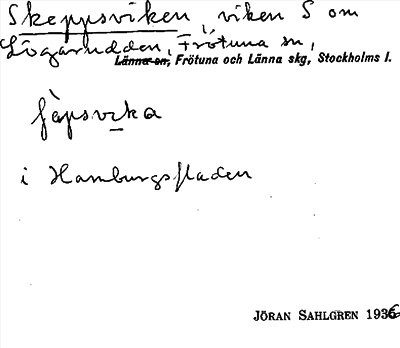 Skeppsviken, viken S om
Lögarudden, Frötuna sn,
Länna sn, Frötuna och Länna skg, Stockholms l.
i Hamburgsfladen
JÖRAN SAHLGREN 1936